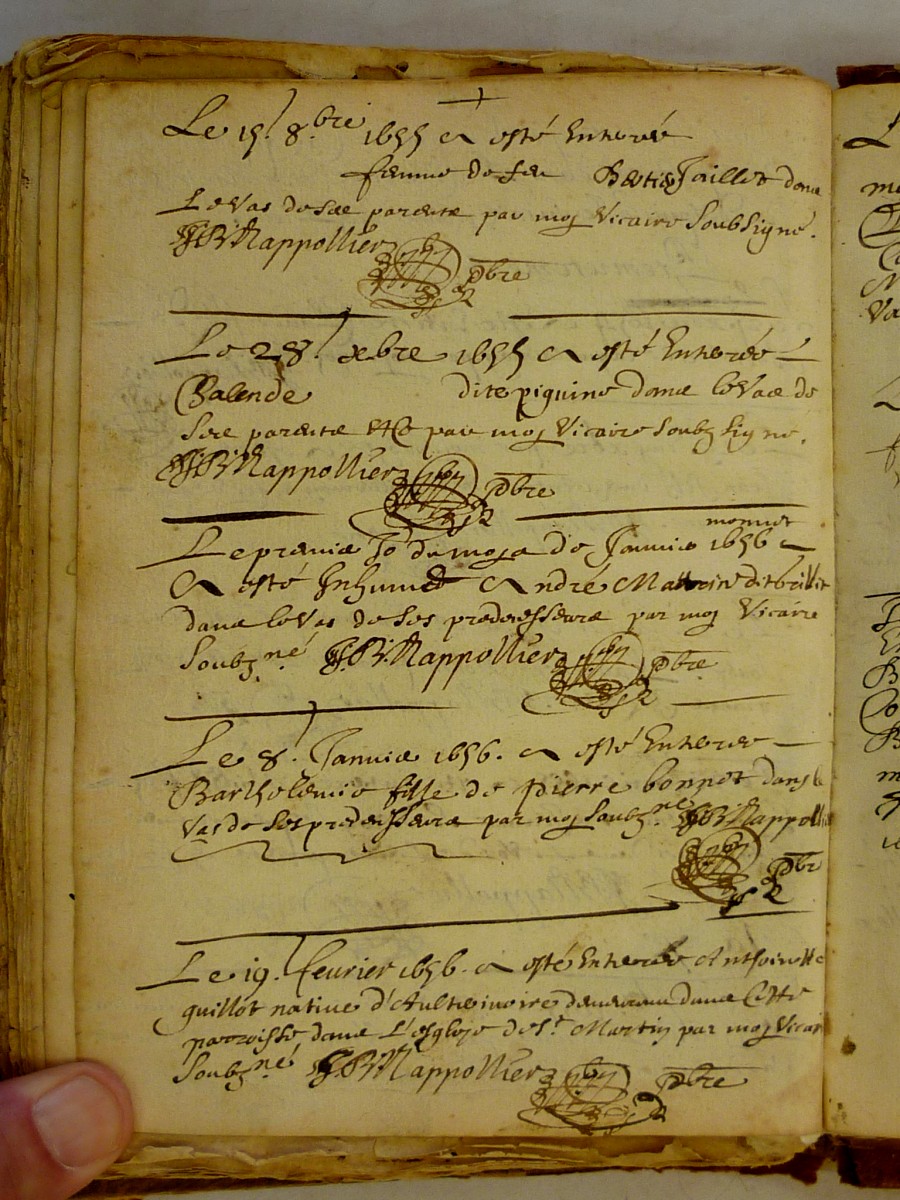 Le 15. 8.bre 1655 a esté Enterrée
femme de feu Jaillet dans
Le vas de ses parents par moy Vicaire Soubsigné.
JB Rappollier pbre
Le 28. xbre 1655 a esté Enterrée
Balende dite piguine dans le vas de
Ses parents etc par moy Vicaire Soubzsigné.
JB Rappollier pbre
Le premier Jo du moys de Janvier 1656
a esté Inhumé André dans le vas de Ses predecesseurs par moy Vicaire
Soubz.né JB Rappollier pbre
Le 8. Janvier 1656. a esté Enterrée
Bartholemie fille de pierre bonnot dans le
Vas de Ses predecesseurs par moy Soubz.né JB Rappollier
pbre
Le 19. feurier 1656. a esté Enterrée Anthoinette
guillot natiue d'Aultrivoire dans Cette
parroisse, dans L'esglize de St. Martin par moy Vicaire
Soubz.né JB Rappollier pbre